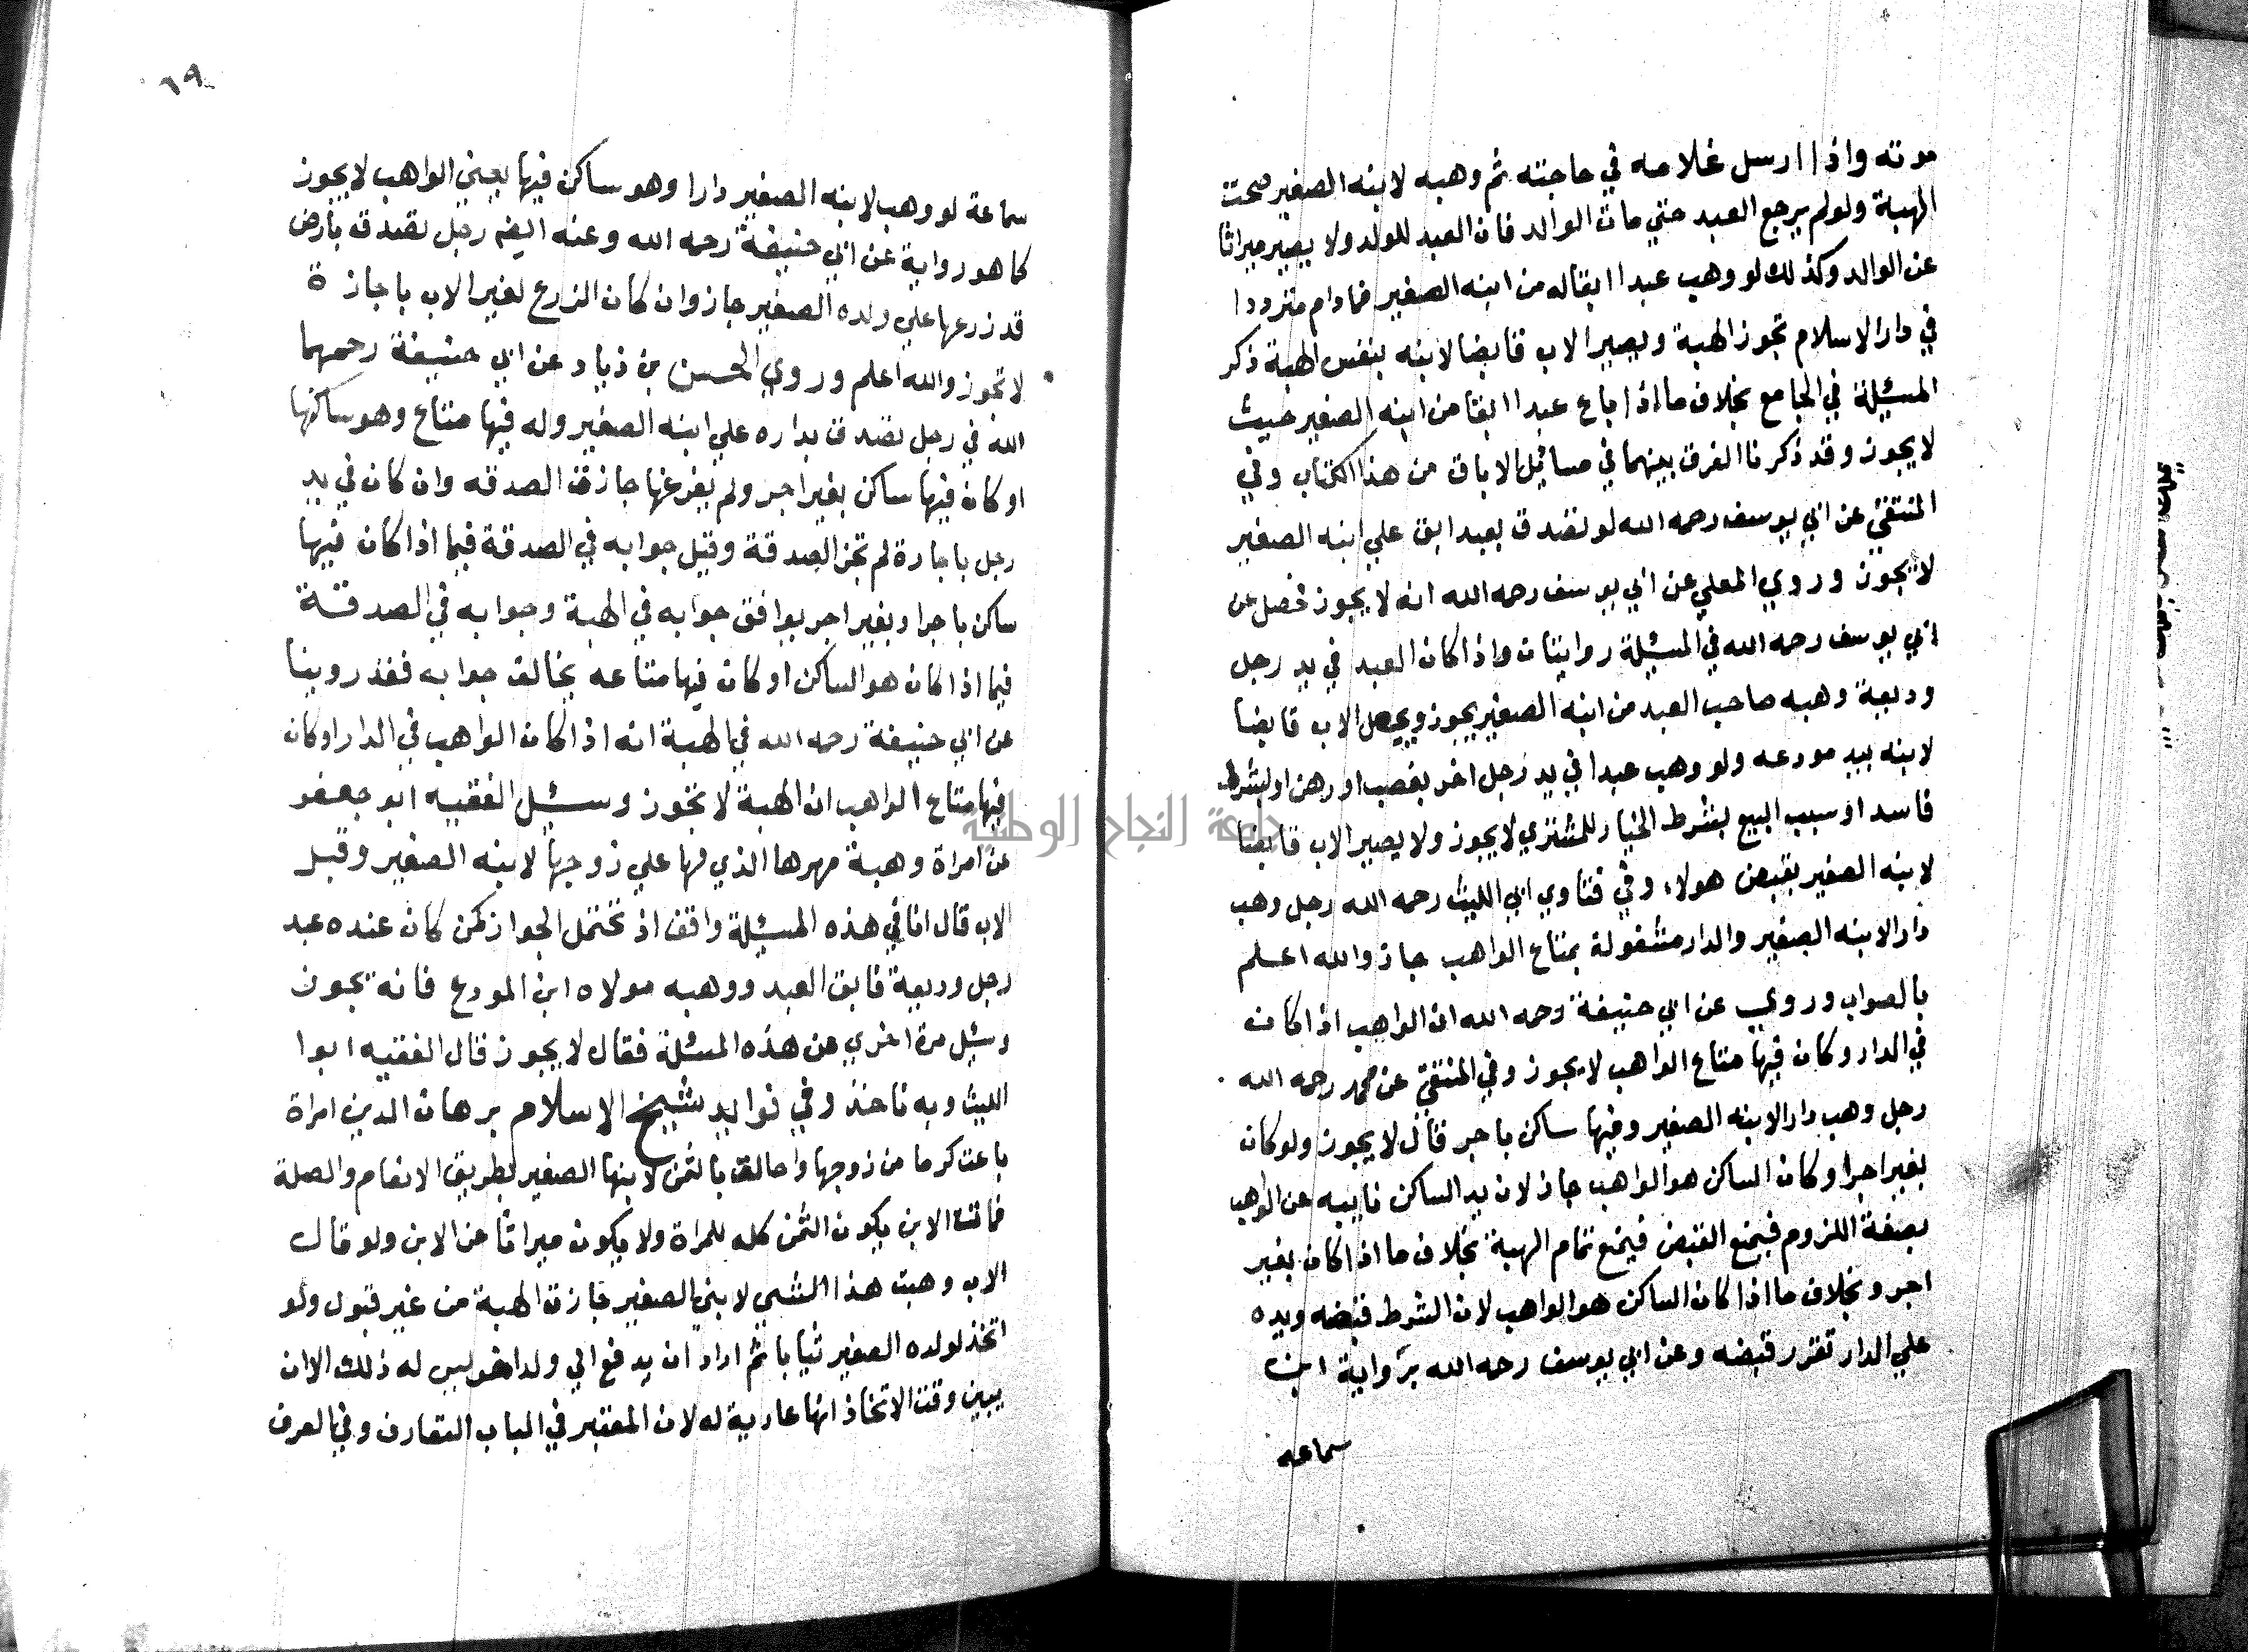 موته واذا ارسل غلامه في حاجته ثم وهبه لابنه الصغير صحت
الهبة ولولم يرجع العبد حتي مات الوالد فان العبد للولد ولا يصير ميراثا
عن الوالد وكذلك لو وهب عبدا ابقاله من ابنه الصغير فمادام مترددا
في دار الاسلام تجوز الهبة ويصير الاب قابضا لابنه بنفس الهبة ذكر
المسئلة في الجامع بخلاف ما اذا باع عبدا ابقا من ابنه الصغير حيث
لايجوز وقد ذكرنا الفرق بينهما في مسائيل الاباق من هذا الكتاب وفي
المنتقي عن ابي يوسف رحمه الله لو تصدق بعبد ابق علي ابنه الصغير
لايجوز وروي المعلي عن ابي يوسف رحمه الله انه لايجوز فحصل عن
ابي يوسف رحمه الله في المسئلة روايتان واذا كان العبد في يد رجل
وديعة وهبه صاحب العبد من ابنه الصغير يجوز ويجعل الاب قابضا
لابنه بيد مودعه ولو وهب عبدا في يد رجل اخر بغصب او رهن او بشرط
فاسد او سبب البيع بشرط الخيار للمشتري لايجوز ولا يصير الاب قابضا
لابنه الصغير بقبض هولاء وفي فتاوي ابي الليث رحمه الله رجل وهب
دارالابنه الصغير والدار مشغولة بمتاع الواهب جاز والله اعلم
بالصواب وروي عن ابي حنيفة رحمه الله ان الواهب اذا كان
في الدار وكان فيها متاع الواهب لايجوز وفي المنتقي عن محمد رحمه الله
رجل وهب دارالابنه الصغير وفيها ساكن باجر قال لايجوز ولوكان
بغير اجرا وكان الساكن هو الواهب جاز لان يد الساكن نايبه عن الواهب
بصفة اللزوم فيمنع القبض فيمنع تمام الهبة بخلاف ما اذا كان بغير
اجر وبخلاف ما اذا كان الساكن هو الواهب لان الشرط قبضه ويده
علي الدار تقرر قبضه وعن ابي يوسف رحمه الله برواية ابن
سماعه
٦٩
سماعة لو وهب لابنه الصغير دارا وهو ساكن فيها يعني الواهب لايجوز
كما هو رواية عن ابي حنيفة رحمه الله وعنه ايضا رجل تصدق بارض
قد زرعها علي ولده الصغير جاز وان كان الزرع لغير الاب باجازة
لا تجوز والله اعلم وروي الحسن بن زياد عن ابي حنيفة رحمهما
الله في رجل تصدق بداره علي ابنه الصغير وله فيها متاع وهو ساكنها
او كان فيها ساكن بغير اجر ولم يفرغها جازت الصدقه وان كان في يد
رجل باجارة لم تجز الصدقة وقيل جوابه في الصدقة فيما اذا كان فيها
ساكن باجرا وبغير اجر يوافق جوابه في الهبة وجوابه في الصدقة
فيما اذا كان هو الساكن او كان فيها متاعه يخالف جوابه فقد روينا
عن ابي حنيفة رحمه الله في الهبة انه اذا كان الواهب في الدار اوكان
فيها متاع الواهب ان الهبة لا تجوز وسئل الفقيه ابو جعفر
عن امراة وهبة مهرها الذي لها علي زوجها لابنه الصغير وقبل
الاب قال انا في هذه المسئلة واقف اذ تحتمل الجواز كمن كان عنده عبد
رجل وديعة فابق العبد ووهبه مولاه ابن المودع فانه يجوز
وسئل مرة اخري عن هذه المسئلة فقال لايجوز قال الفقيه ابوا
الليث وبه ناخذ وفي فوايد شيخ الاسلام برهان الدين امراة
باعت كرما من زوجها واحالت بالثمن لابنها الصغير بطريق الانعام والصلة
فمات الابن يكون الثمن كله للمراة ولا يكون ميراثا عن الابن ولو قال
الاب وهبت هذا الشي لابني الصغير جازت الهبة من غير قبول ولو
اتخذ لولده الصغير ثيابا ثم اراد ان يدفع الي ولد اخر ليس له ذلك الا ان
يبين وقت الاتخاذ انها عارية له لان المعتبر في الباب التعارف وفي العرف
جامعة النجاح الوطنية